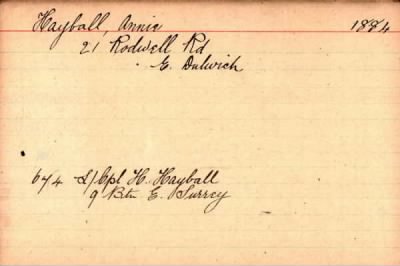 Hayball, Annie 1884
21 Rodwell Rd
E. Dulwich
674 L/Cpl H. Hayball
9 Btn E. Surrey